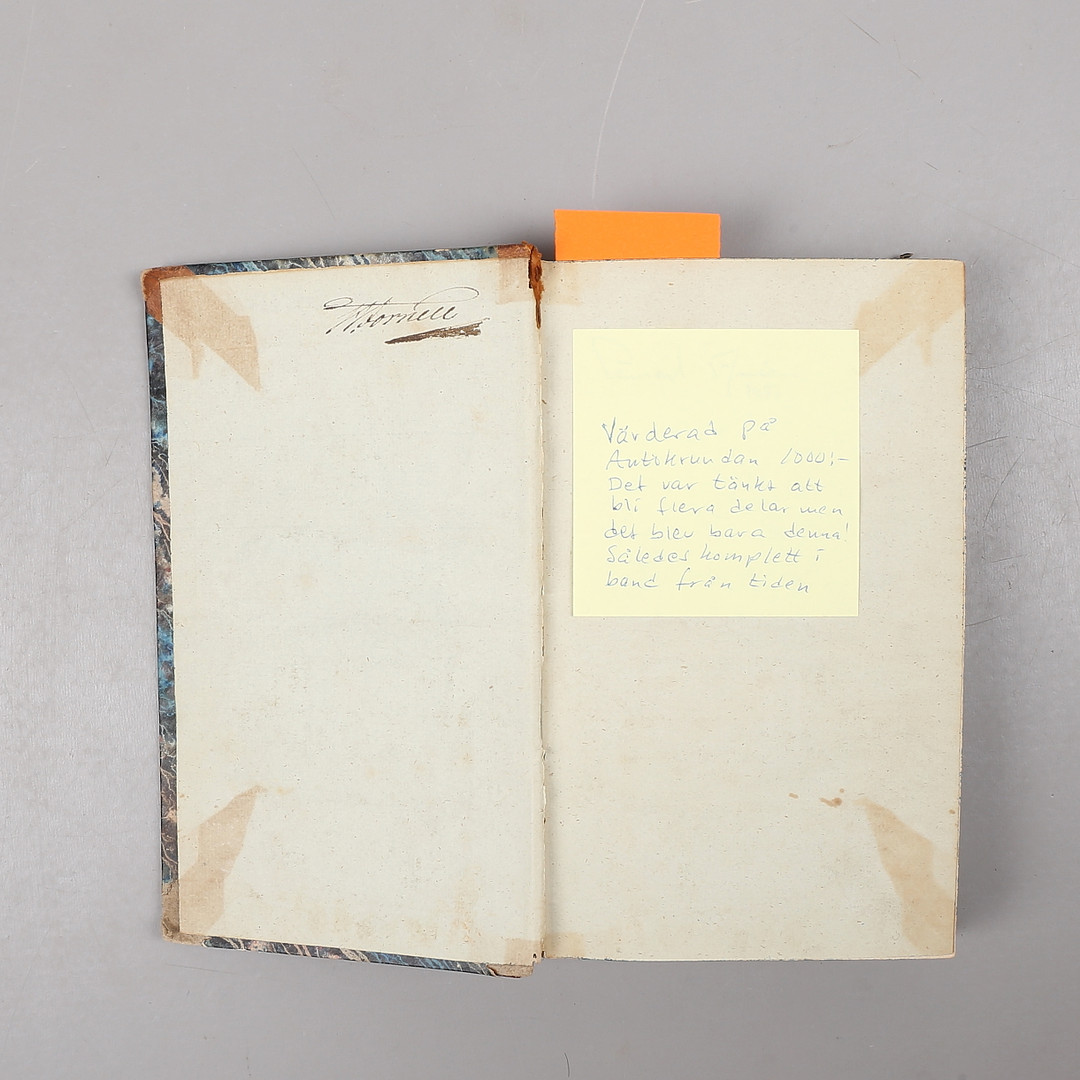 Värderad på
Antikrundan 1000:-
Det var tänkt att
bli flera delar men
det blev bara denna!
Således komplett i
band från tiden